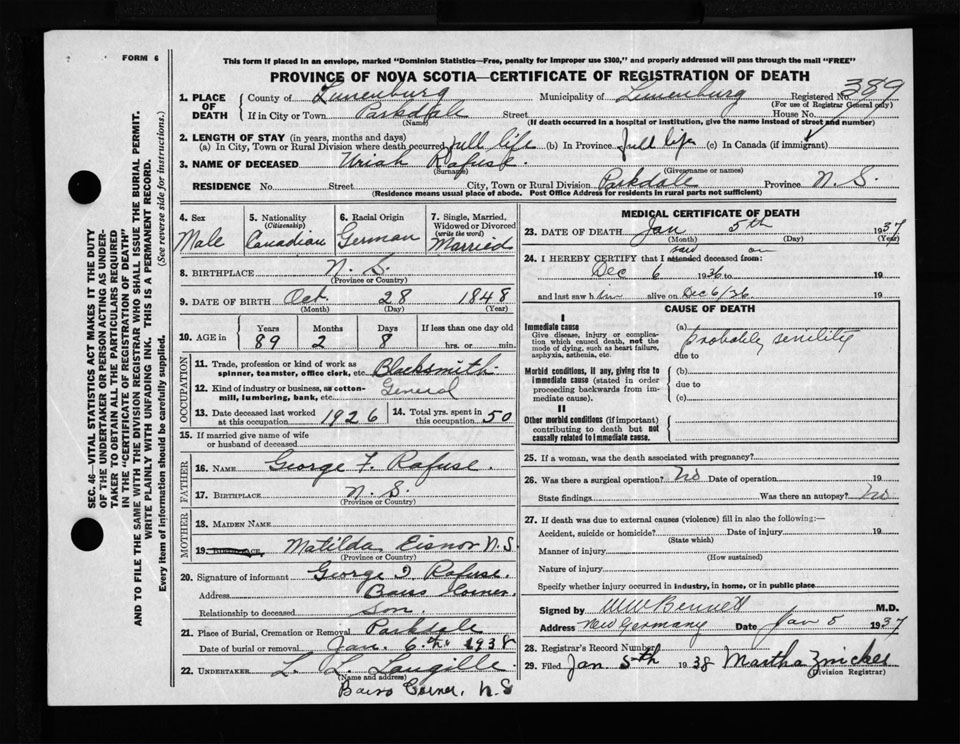 FORM 6
This form if placed in an envelope, marked "Dominion Statistics—Free, penalty for improper use $300," and properly addressed will pass through the mail "FREE"
PROVINCE OF NOVA SCOTIA—CERTIFICATE OF REGISTRATION OF DEATH
1. PLACE OF DEATH County of Lunenburg Municipality of Lunenburg Registered No. 389
(For use of Registrar General only)
If in City or Town Parkdale Street House No.
(Name) (If death occurred in a hospital or institution, give the name instead of street and number)
2. LENGTH OF STAY (in years, months and days)
(a) In City, Town or Rural Division where death occurred full life (b) In Province full life (c) In Canada (if immigrant)
3. NAME OF DECEASED Uriah Rafuse
(Surname) (Given name or names)
RESIDENCE No. Street City, Town or Rural Division Parkdale Province N. S.
(Residence means usual place of abode. Post Office Address for residents in rural parts not sufficient)
4. Sex Male
5. Nationality (Citizenship) Canadian
6. Racial Origin German
7. Single, Married, Widowed or Divorced (write the word) Married
8. BIRTHPLACE N. S.
(Province or Country)
9. DATE OF BIRTH Oct. 28 1848
(Month) (Day) (Year)
10. AGE in Years 89 Months 2 Days 8 If less than one day old hrs. or min.
OCCUPATION
11. Trade, profession or kind of work as spinner, teamster, office clerk, etc. Blacksmith
12. Kind of industry or business, as cotton-mill, lumbering, bank, etc. General
13. Date deceased last worked at this occupation 1926
14. Total yrs. spent in this occupation 50
15. If married give name of wife or husband of deceased
FATHER
16. NAME George F. Rafuse
17. BIRTHPLACE N. S.
(Province or Country)
MOTHER
18. MAIDEN NAME
19. BIRTHPLACE Matilda Eisnor N. S.
(Province or Country)
20. Signature of informant George I. Rafuse.
Address Barss Corner.
Relationship to deceased Son.
21. Place of Burial, Cremation or Removal Parkdale
Date of burial or removal Jan. 6th 1938
22. UNDERTAKER L. L. Langille
(Name and address)
Barss Corner, N. S
MEDICAL CERTIFICATE OF DEATH
23. DATE OF DEATH Jan 5th 1937
(Month) (Day) (Year)
24. I HEREBY CERTIFY that I attended said deceased from: on
Dec 6 1936 to 19
and last saw h im alive on Dec 6/36 19
CAUSE OF DEATH
I
Immediate cause
Give disease, injury or complication which caused death, not the mode of dying, such as heart failure, asphyxia, asthenia, etc.
(a) probably senility
due to
Morbid conditions, if any, giving rise to immediate cause (stated in order proceeding backwards from immediate cause).
(b)
due to
(c)
II
Other morbid conditions (if important) contributing to death but not causally related to immediate cause.
25. If a woman, was the death associated with pregnancy?
26. Was there a surgical operation? No Date of operation 19
State findings Was there an autopsy? No
27. If death was due to external causes (violence) fill in also the following:—
Accident, suicide or homicide? Date of injury 19
(State which)
Manner of injury
(How sustained)
Nature of injury
Specify whether injury occurred in industry, in home, or in public place
Signed by W W Bennett M.D.
Address New Germany Date Jan 5 1937
28. Registrar's Record Number
29. Filed Jan 5th 1938 Martha Zinckes
(Division Registrar)
SEC. 46—VITAL STATISTICS ACT MAKES IT THE DUTY
OF THE UNDERTAKER OR PERSON ACTING AS UNDER-
TAKER TO OBTAIN ALL THE PARTICULARS REQUIRED
IN THE "CERTIFICATE OF REGISTRATION OF DEATH"
AND TO FILE THE SAME WITH THE DIVISION REGISTRAR WHO SHALL ISSUE THE BURIAL PERMIT.
WRITE PLAINLY WITH UNFADING INK. THIS IS A PERMANENT RECORD.
Every item of information should be carefully supplied. (See reverse side for instructions.)